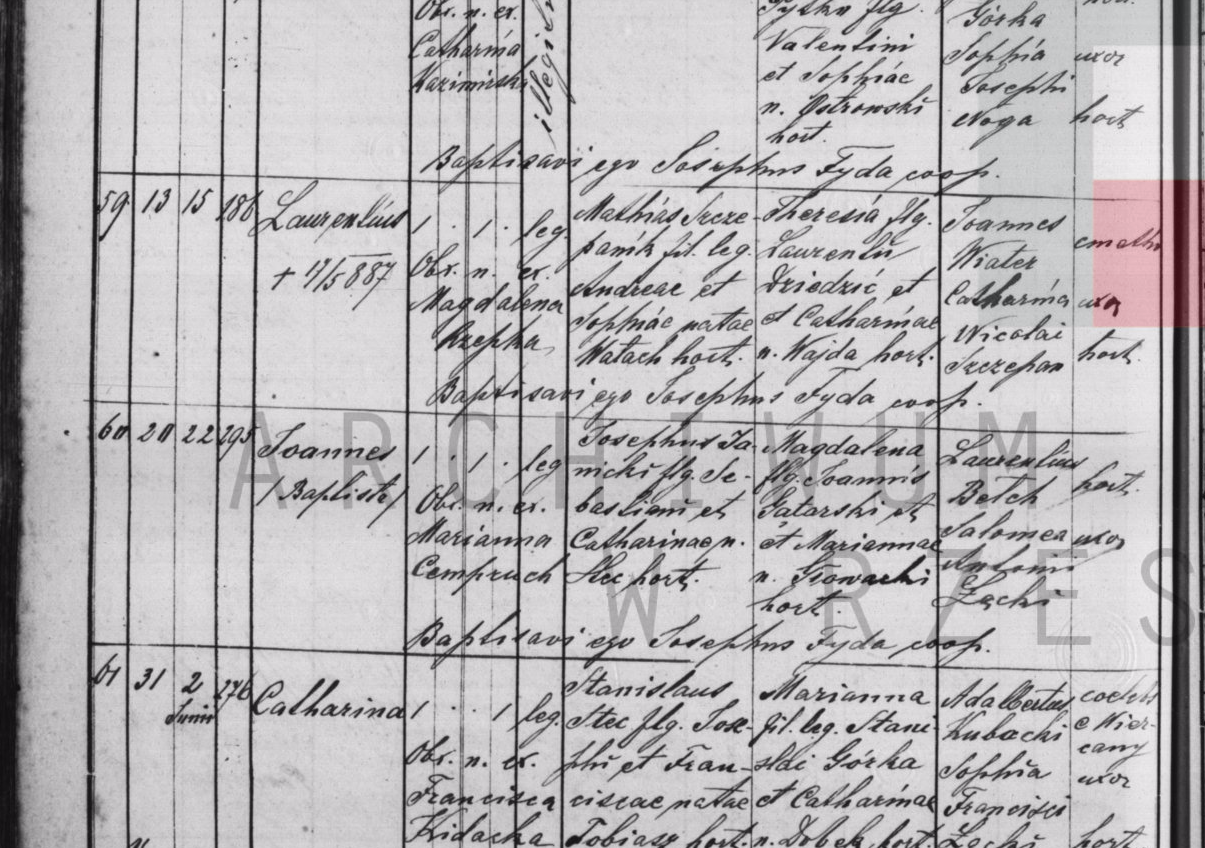 Obr. n. ex. illegi Fytko flg. Górka
Catharina Valentini Sophia uxor
Kazimirska et Sophiae Josephi
n. Ostrowski Noga hort
hort.
Baptisavi ego Josephus Fyda coop.
59 13 15 186 Laurentius 1 . 1 . leg. Mathias Szcze- Theresia flg. Joannes
panik fil. leg. Laurentii Wiater
+ 11/5 887 Obr. n. ex. Andreae et Dziedzic et Catharina uxor
Magdalena Sophiae natae et Catharinae Nicolai
Rzepka Watach hort. n. Wajda hort. Szczepan hort.
Baptisavi ego Josephus Fyda coop.
60 20 22 295 Joannes 1 . 1 . leg Josephus Ja- Magdalena Laurentius
/Baptiste/ nicki flg. Se- flg. Joannis Betch hort.
Obr. n. ex. bastiani et Satarski et Salomea uxor
Marianna Catharinae n. et Mariannae Antoni
Cempruch Stec hort. n. Growacki Zącki
hort.
Baptisavi ego Josephus Fyda coop.
61 31 2 Junii 276 Catharina 1 . . 1 leg. Stanislaus Marianna Adalbertus coelebs
Stec flg. Jose- fil. leg. Stani- Kubacki e Wier-
cany
Obr. n. ex. phi et Fran- slai Górka Sophia uxor
Francisca ciscae natae et Catharinae Francisci
Kidacka Tobiasz hort. n. Dobek hort. Zącki hort.
ARCHIWUM
W RZES